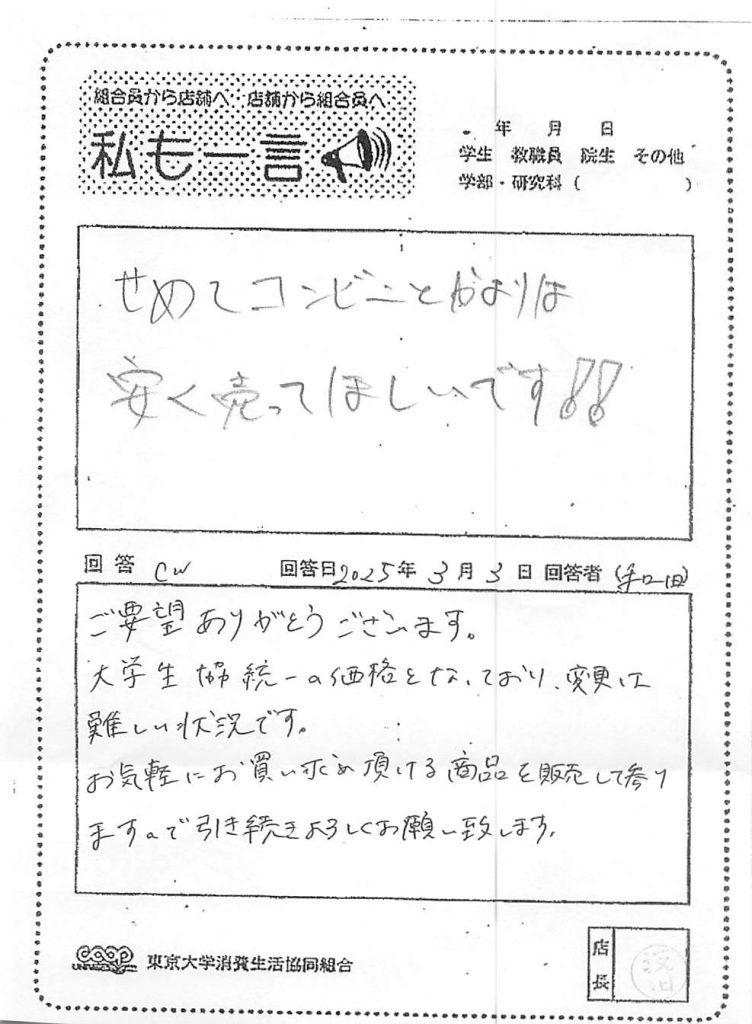 組合員から店舗へ 店舗から組合員へ
私も一言
年 月 日
学生 教職員 院生 その他
学部・研究科（ ）
せめてコンビニとかよりは
安く売ってほしいです!!
回答 CW 回答日 2025年 3月 3日 回答者
ご要望ありがとうございます。
大学生協統一の価格となっており、変更は
難しい状況です。
お気軽にお買い求め頂ける商品を販売して参り
ますので引き続きよろしくお願い致します。
coop 東京大学消費生活協同組合
UNIVERSITY
店長